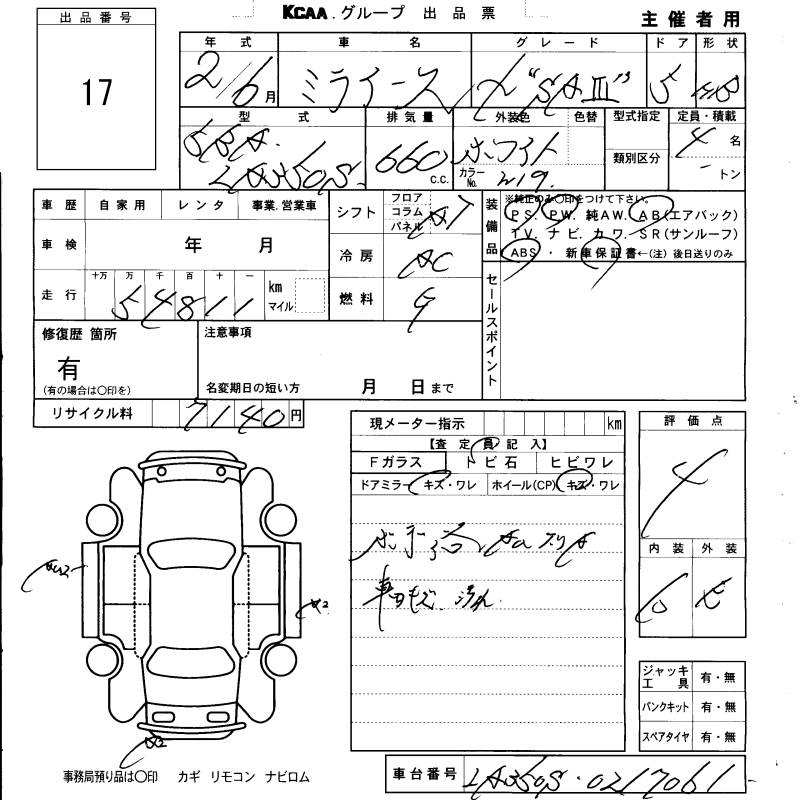 KCAA.グループ 出品票
主催者用
出品番号
17
年式 車名 グレード ドア 形状
2/6月 ミライース X "SAⅢ" 5 HB
型式 排気量 外装色 色替 型式指定 定員・積載
5BA. LA350S. 660 C.C. ホワイト 4名
カラーNo. W19. 類別区分 -トン
車歴 自家用 レンタ 事業.営業車
車検 年 月
走行 十万 万 千 百 十 一
54811 km マイル
シフト フロア コラム パネル AT
冷房 AC
燃料 G
装備品 ※純正のみ○印をつけて下さい。
PS. PW. 純AW. AB(エアバック)
TV. ナビ. カワ. SR(サンルーフ)
ABS ・ 新車保証書←(注)後日送りのみ
セールスポイント
修復歴 箇所
有
(有の場合は○印を)
注意事項
名変期日の短い方 月 日まで
リサイクル料 7140円
現メーター指示 km
【査定員記入】
Fガラス トビ石 ヒビワレ
ドアミラー キズ・ワレ ホイール(CP) キズ・ワレ
車内キズ、汚れ.
評価点
4
内装 外装
ジャッキ工具 有・無
パンクキット 有・無
スペアタイヤ 有・無
A2
A2
事務局預り品は○印 カギ リモコン ナビロム
車台番号 LA350S-0217061-